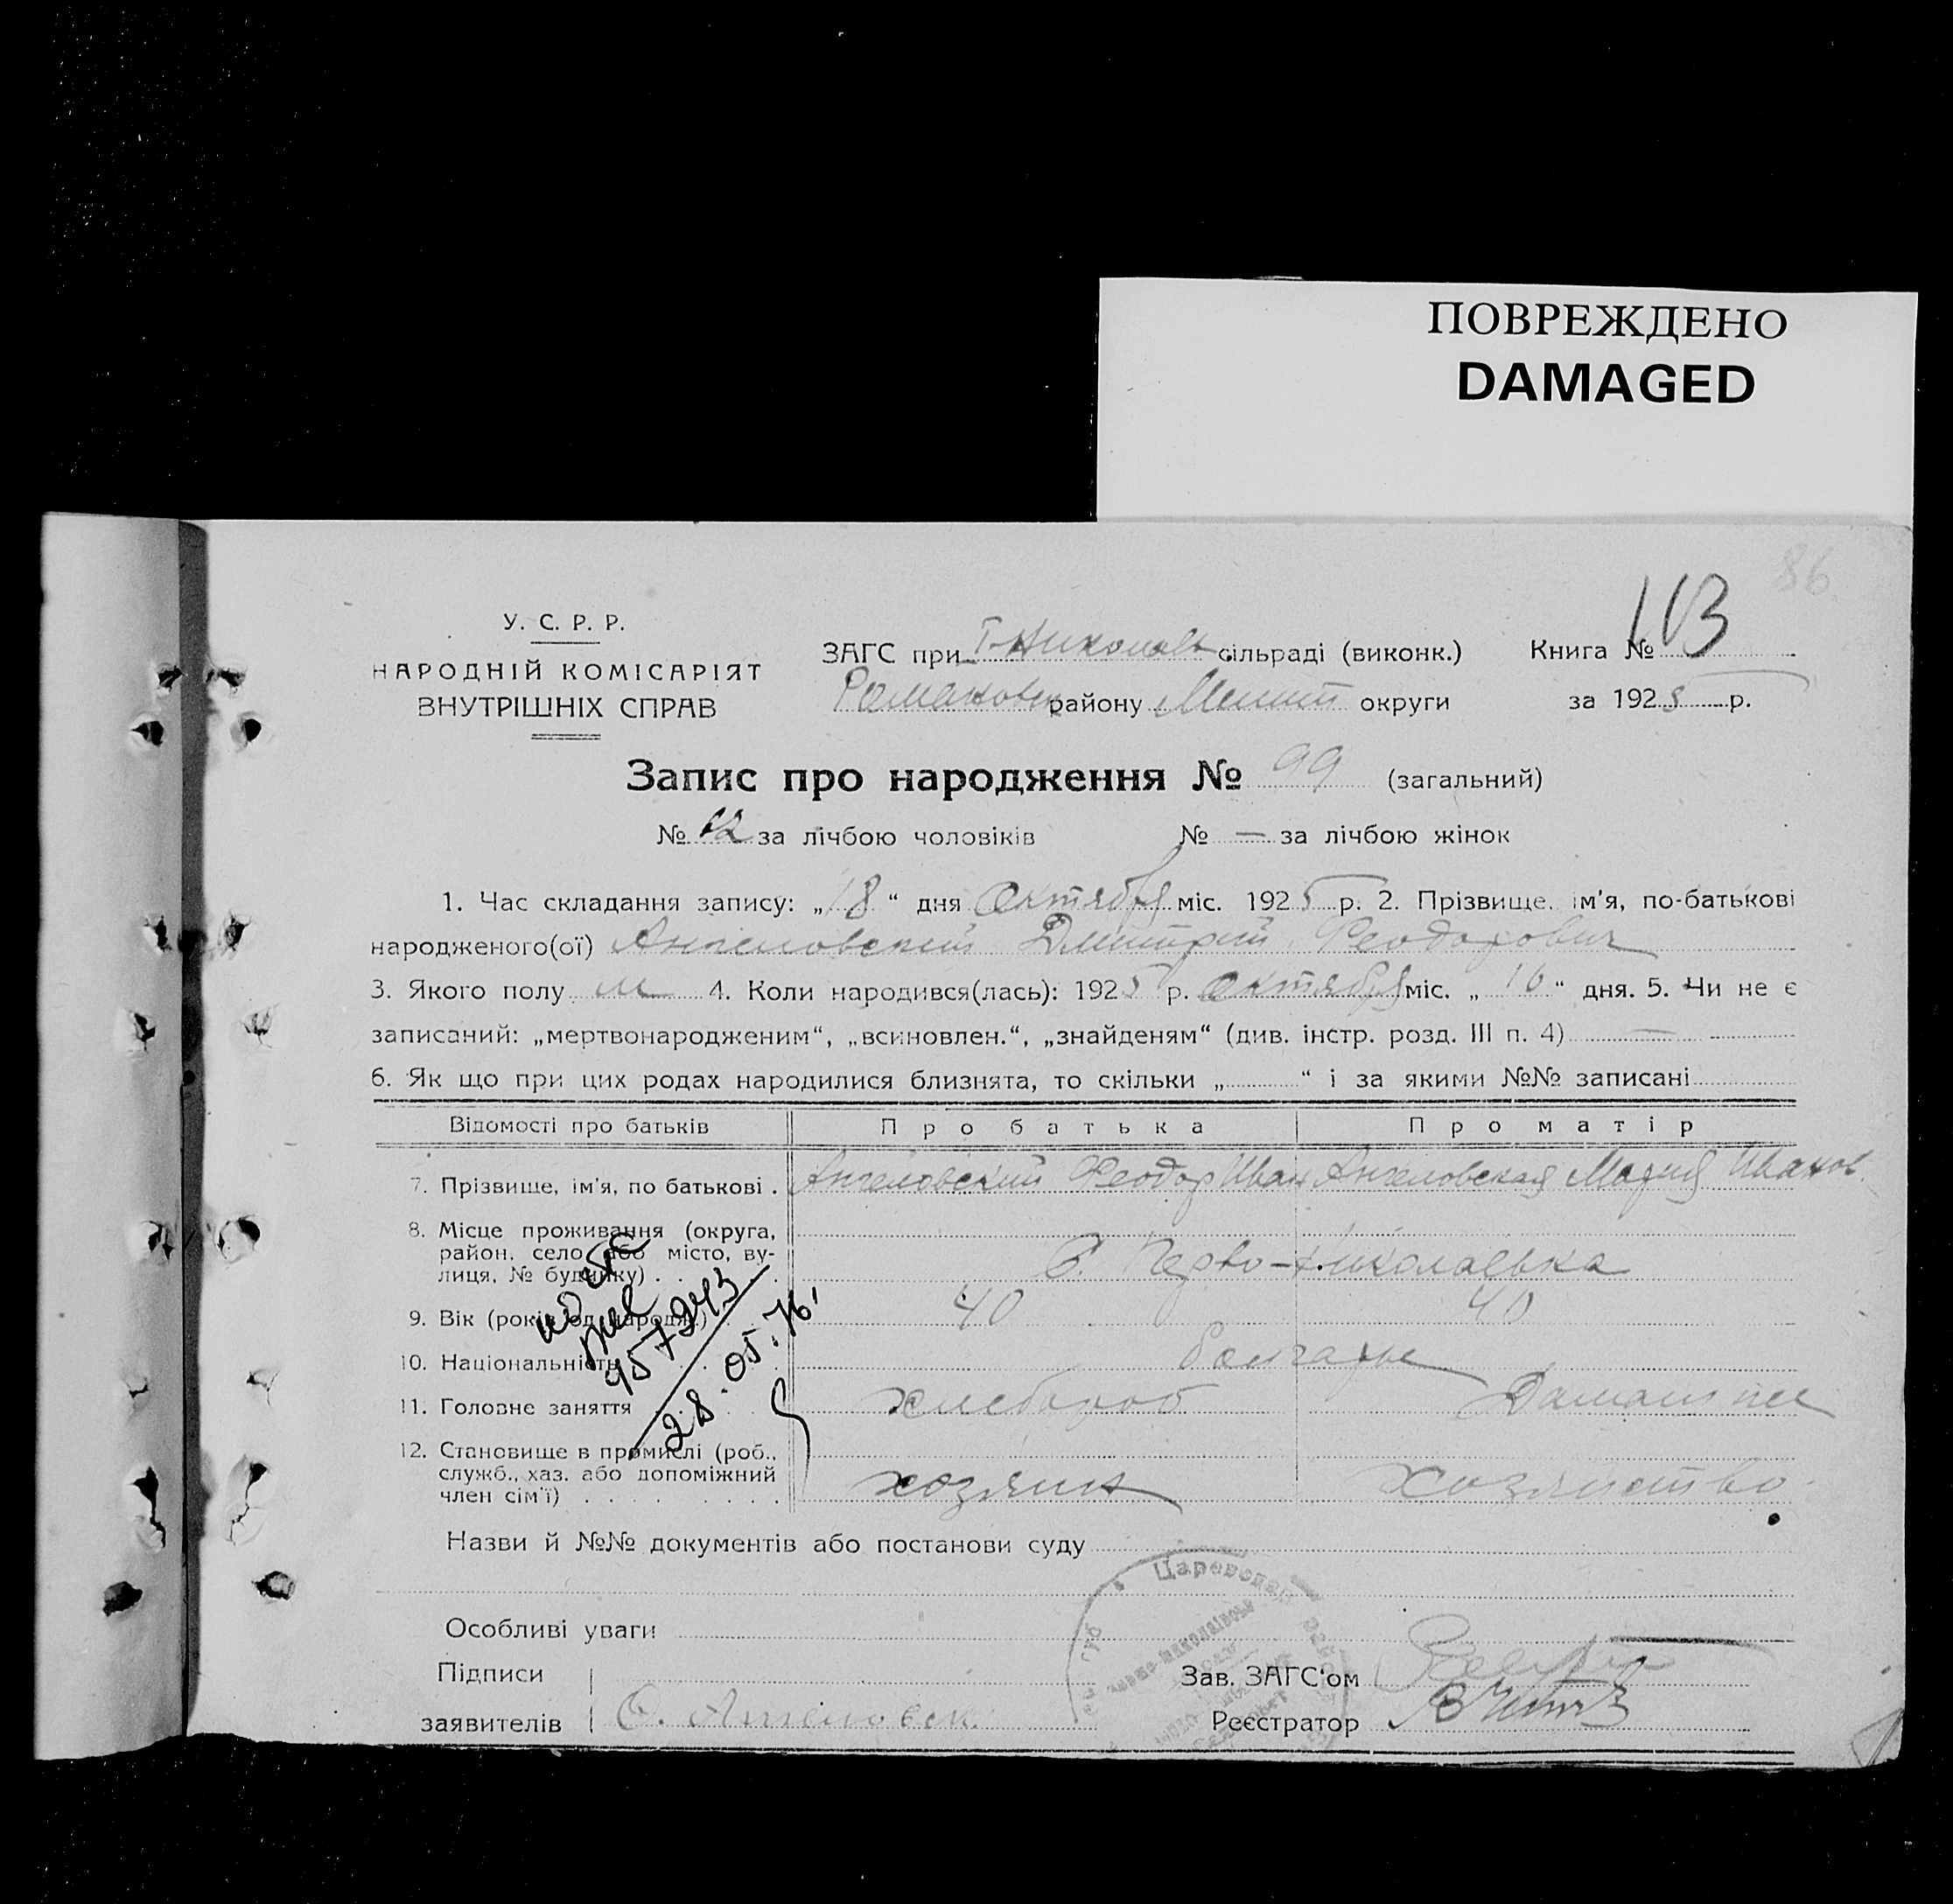 ПОВРЕЖДЕНО
DAMAGED
86
У. С. Р. Р.
НАРОДНІЙ КОМІСАРІЯТ
ВНУТРІШНІХ СПРАВ
ЗАГС при сільраді (виконк.)
Романовск району округи
Книга № 103
за 1925 р.
Запис про народження № 99 (загальний)
№ за лічбою чоловіків № — за лічбою жінок
1. Час складання запису: „18“ дня Октября міс. 1925 р. 2. Прізвище, ім'я, по-батькові
народженого(ої) Ангеловский Дмитрий Феодорович
3. Якого полу м 4. Коли народився(лась): 1925 р. Октября міс. „16“ дня. 5. Чи не є
записаний: „мертвонародженим“, „всиновлен.“, „знайденям“ (див. інстр. розд. III п. 4) —
6. Як що при цих родах народилися близнята, то скільки „ “ і за якими №№ записані
Відомості про батьків Про батька Про матір
7. Прізвище, ім'я, по батькові . Ангеловский Феодор Иван Ангеловская Мария Иванов.
8. Місце проживання (округа,
район, село або місто, ву-
лиця, № будинку) . . . С. Перво-Николаевка
9. Вік (років од народж.) . . 40 40
10. Національність . . . . болгаре
11. Головне заняття . . . . хлебороб Домашнее
12. Становище в промислі (роб.,
служб., хаз. або допоміжний
член сім'ї) . . . . . . . . хозяин хозяйство
457943
28.05.76.
Назви й №№ документів або постанови суду
Особливі уваги
Підписи
заявителів Ф. Ангеловск.
Зав. ЗАГС'ом
Реєстратор